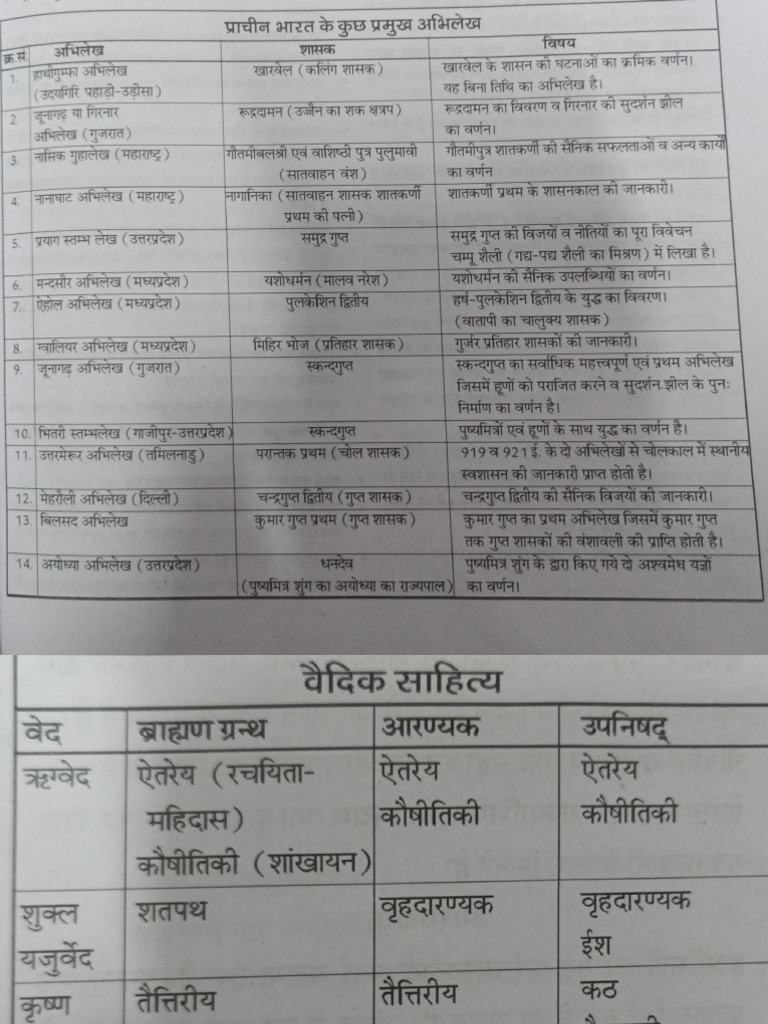 प्राचीन भारत के कुछ प्रमुख अभिलेख
क्र.सं. अभिलेख शासक विषय
1. हाथीगुम्फा अभिलेख खारवेल (कलिंग शासक) खारवेल के शासन की घटनाओं का क्रमिक वर्णन।
(उदयगिरि पहाड़ी-उड़ीसा) यह बिना तिथि का अभिलेख है।
2. जूनागढ़ या गिरनार रूद्रदामन (उज्जैन का शक क्षत्रप) रूद्रदामन का विवरण व गिरनार की सुदर्शन झील
अभिलेख (गुजरात) का वर्णन।
3. नासिक गुहालेख (महाराष्ट्र) गौतमीबलश्री एवं वाशिष्ठी पुत्र पुलुमावी गौतमीपुत्र शातकर्णी की सैनिक सफलताओं व अन्य कार्यों
(सातवाहन वंश) का वर्णन
4. नानाघाट अभिलेख (महाराष्ट्र) नागानिका (सातवाहन शासक शातकर्णी शातकर्णी प्रथम के शासनकाल की जानकारी।
प्रथम की पत्नी)
5. प्रयाग स्तम्भ लेख (उत्तरप्रदेश) समुद्र गुप्त समुद्र गुप्त की विजयों व नीतियों का पूरा विवेचन
चम्पू शैली (गद्य-पद्य शैली का मिश्रण) में लिखा है।
6. मन्दसौर अभिलेख (मध्यप्रदेश) यशोधर्मन (मालव नरेश) यशोधर्मन की सैनिक उपलब्धियों का वर्णन।
7. ऐहोल अभिलेख (मध्यप्रदेश) पुलकेशिन द्वितीय हर्ष-पुलकेशिन द्वितीय के युद्ध का विवरण।
(वातापी का चालुक्य शासक)
8. ग्वालियर अभिलेख (मध्यप्रदेश) मिहिर भोज (प्रतिहार शासक) गुर्जर प्रतिहार शासकों की जानकारी।
9. जूनागढ़ अभिलेख (गुजरात) स्कन्दगुप्त स्कन्दगुप्त का सर्वाधिक महत्त्वपूर्ण एवं प्रथम अभिलेख
जिसमें हूणों को पराजित करने व सुदर्शन झील के पुनः
निर्माण का वर्णन है।
10. भितरी स्तम्भलेख (गाजीपुर-उत्तरप्रदेश) स्कन्दगुप्त पुष्यमित्रों एवं हूणों के साथ युद्ध का वर्णन है।
11. उत्तरमेरूर अभिलेख (तमिलनाडु) परान्तक प्रथम (चोल शासक) 919 व 921 ई. के दो अभिलेखों से चोलकाल में स्थानीय
स्वशासन की जानकारी प्राप्त होती है।
12. मेहरौली अभिलेख (दिल्ली) चन्द्रगुप्त द्वितीय (गुप्त शासक) चन्द्रगुप्त द्वितीय की सैनिक विजयों की जानकारी।
13. बिलसद अभिलेख कुमार गुप्त प्रथम (गुप्त शासक) कुमार गुप्त का प्रथम अभिलेख जिसमें कुमार गुप्त
तक गुप्त शासकों की वंशावली की प्राप्ति होती है।
14. अयोध्या अभिलेख (उत्तरप्रदेश) धनदेव पुष्यमित्र शुंग के द्वारा किए गये दो अश्वमेध यज्ञों
(पुष्यमित्र शुंग का अयोध्या का राज्यपाल) का वर्णन।
वैदिक साहित्य
वेद ब्राह्मण ग्रन्थ आरण्यक उपनिषद्
ऋग्वेद ऐतरेय (रचयिता- ऐतरेय ऐतरेय
महिदास) कौषीतिकी कौषीतिकी
कौषीतिकी (शांखायन)
शुक्ल शतपथ वृहदारण्यक वृहदारण्यक
यजुर्वेद ईश
कृष्ण तैत्तिरीय तैत्तिरीय कठ